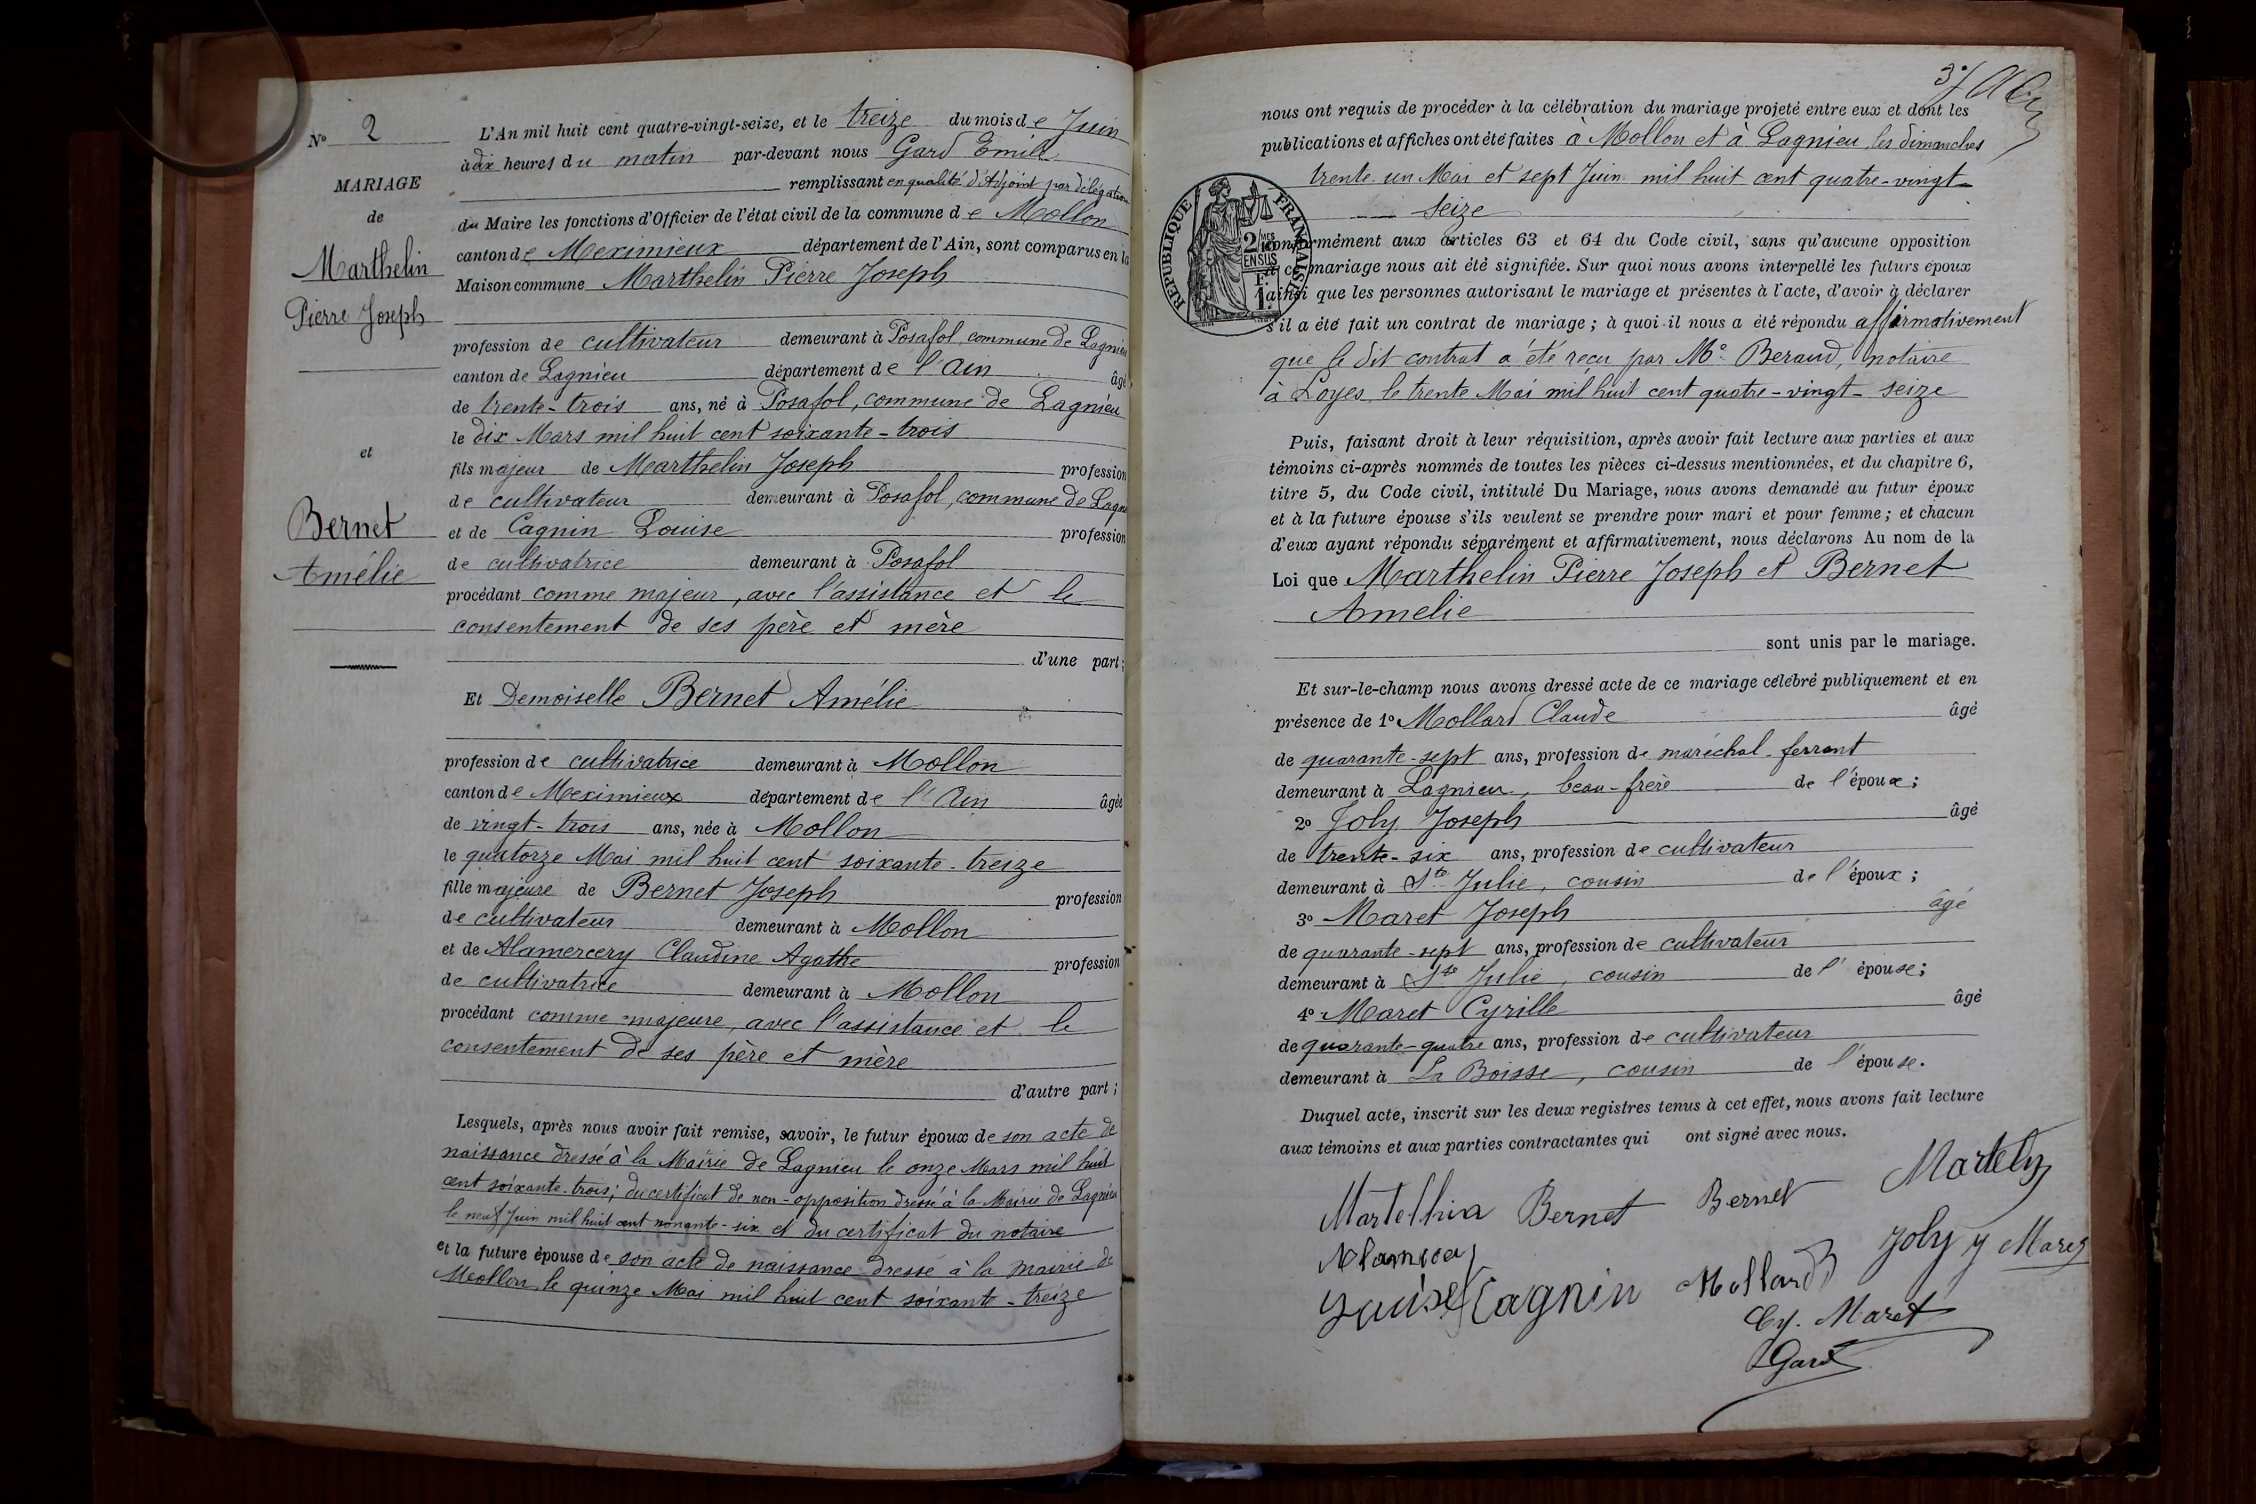 No 2
MARIAGE
de
Marthelin
Pierre Joseph
et
Bernet
Amélie
L'An mil huit cent quatre-vingt-seize, et le treize du mois de Juin
à dix heures du matin par-devant nous Gard Emile
remplissant en qualité d'Adjoint par délégation
du Maire les fonctions d'Officier de l'état civil de la commune de Mollon
canton de Meximieux département de l'Ain, sont comparus en la
Maison commune Marthelin Pierre Joseph
profession de cultivateur demeurant à Posafol, commune de Lagnieu
canton de Lagnieu département de l'Ain âgé
de trente-trois ans, né à Posafol, commune de Lagnieu
le dix Mars mil huit cent soixante-trois
fils majeur de Marthelin Joseph profession
de cultivateur demeurant à Posafol, commune de Lagn
et de Cagnin Louise profession
de cultivatrice demeurant à Posafol
procédant comme majeur, avec l'assistance et le
consentement de ses père et mère
d'une part;
Et Demoiselle Bernet Amélie
profession de cultivatrice demeurant à Mollon
canton de Meximieux département de l'Ain âgée
de vingt-trois ans, née à Mollon
le quatorze Mai mil huit cent soixante-treize
fille majeure de Bernet Joseph profession
de cultivateur demeurant à Mollon
et de Alamercery Claudine Agathe profession
de cultivatrice demeurant à Mollon
procédant comme majeure, avec l'assistance et le
consentement de ses père et mère
d'autre part;
Lesquels, après nous avoir fait remise, savoir, le futur époux de son acte de
naissance dressé à la Mairie de Lagnieu le onze Mars mil huit
cent soixante-trois; du certificat de non-opposition dressé à la Mairie de Lagnieu
le neuf Juin mil huit cent nonante-six et du certificat du notaire
et la future épouse de son acte de naissance dressé à la mairie de
Mollon le quinze Mai mil huit cent soixante-treize
nous ont requis de procéder à la célébration du mariage projeté entre eux et dont les
publications et affiches ont été faites à Mollon et à Lagnieu les dimanches
trente un Mai et sept Juin mil huit cent quatre-vingt-
seize
REPUBLIQUE FRANÇAISE
2 MES
EN SUS
conformément aux articles 63 et 64 du Code civil, sans qu'aucune opposition
à ce mariage nous ait été signifiée. Sur quoi nous avons interpellé les futurs époux
ainsi que les personnes autorisant le mariage et présentes à l'acte, d'avoir à déclarer
s'il a été fait un contrat de mariage; à quoi il nous a été répondu affirmativement
que le dit contrat a été reçu par Me Beraud, notaire
à Loyes le trente Mai mil huit cent quatre-vingt-seize
Puis, faisant droit à leur réquisition, après avoir fait lecture aux parties et aux
témoins ci-après nommés de toutes les pièces ci-dessus mentionnées, et du chapitre 6,
titre 5, du Code civil, intitulé Du Mariage, nous avons demandé au futur époux
et à la future épouse s'ils veulent se prendre pour mari et pour femme; et chacun
d'eux ayant répondu séparément et affirmativement, nous déclarons Au nom de la
Loi que Marthelin Pierre Joseph et Bernet
Amelie
sont unis par le mariage.
Et sur-le-champ nous avons dressé acte de ce mariage célébré publiquement et en
présence de 1o Mollard Claude âgé
de quarante-sept ans, profession de maréchal-ferrant
demeurant à Lagnieu, beau-frère de l'époux;
2o Joly Joseph âgé
de trente-six ans, profession de cultivateur
demeurant à Ste Julie, cousin de l'époux;
3o Maret Joseph âgé
de quarante-sept ans, profession de cultivateur
demeurant à Ste Julie, cousin de l'épouse;
4o Maret Cyrille âgé
de quarante-quatre ans, profession de cultivateur
demeurant à La Boisse, cousin de l'épouse.
Duquel acte, inscrit sur les deux registres tenus à cet effet, nous avons fait lecture
aux témoins et aux parties contractantes qui ont signé avec nous.
Bernet Bernet
Joly
Louise Cagnin Mollard
Cy. Maret
Gard